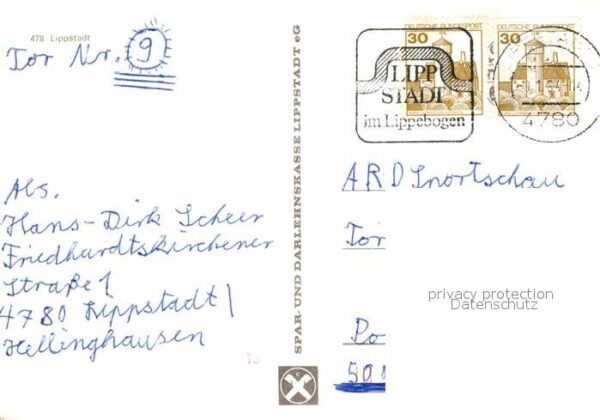 478 Lippstadt
Tor Nr. 9
Abs.
Hans-Dirk Scheer
Friedhardtskirchener
Straße 1
4780 Lippstadt /
Hellinghausen
SPAR- UND DARLEHNSKASSE LIPPSTADT eG
30 DEUTSCHE BUNDESPOST
30 DEUTSCHE BUNDESPOST
LIPP
STADT
im Lippebogen
4780
ARD Sportschau
Tor
privacy protection
Datenschutz
Po
500